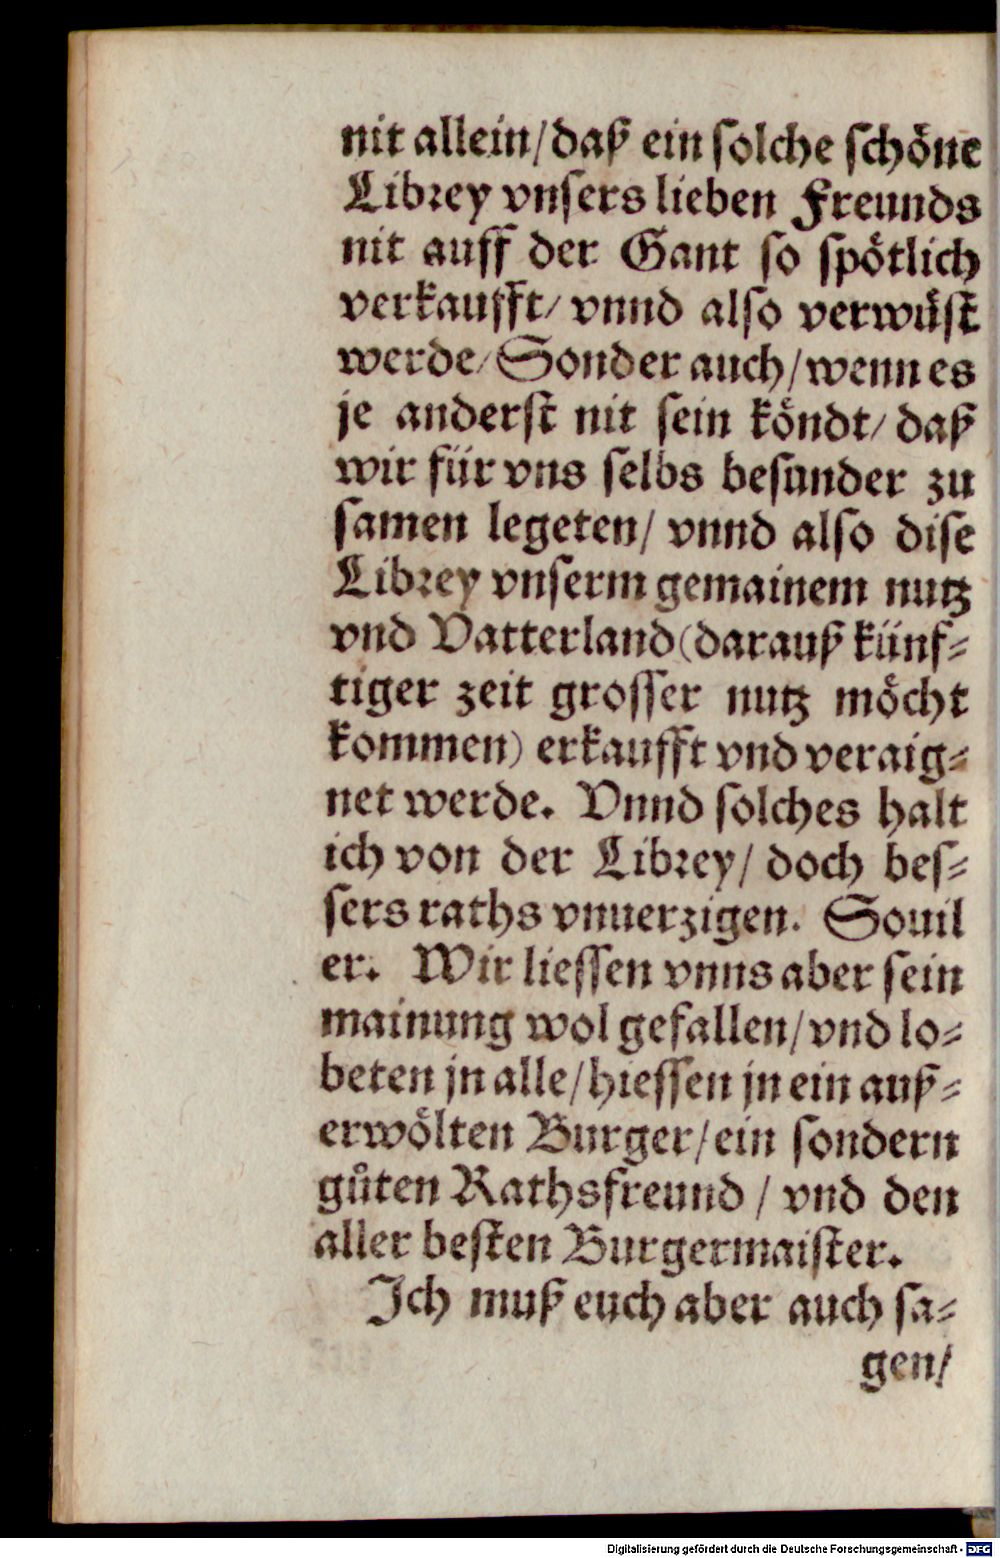 nit allein/daß ein solche schöne
Librey vnsers lieben Freunds
nit auff der Gant so spötlich
verkaufft/ vnnd also verwüst
werde/ Sonder auch/wenn es
je anderst nit sein köndt/ daß
wir für vns selbs besunder zu
samen legeten/ vnnd also dise
Librey vnserm gemainem nutz
vnd Vatterland(darauß künf⸗
tiger zeit grosser nutz möcht
kommen) erkaufft vnd veraig⸗
net werde. Vnnd solches halt
ich von der Librey/ doch bes⸗
sers raths vnuerzigen. Souil
er. Wir liessen vnns aber sein
mainung wol gefallen/vnd lo⸗
beten jn alle/hiessen jn ein auß⸗
erwölten Burger/ein sondern
gůten Rathsfreund / vnd den
aller besten Burgermaister.
Ich muß euch aber auch sa⸗
gen/
Digitalisierung gefördert durch die Deutsche Forschungsgemeinschaft - DFG